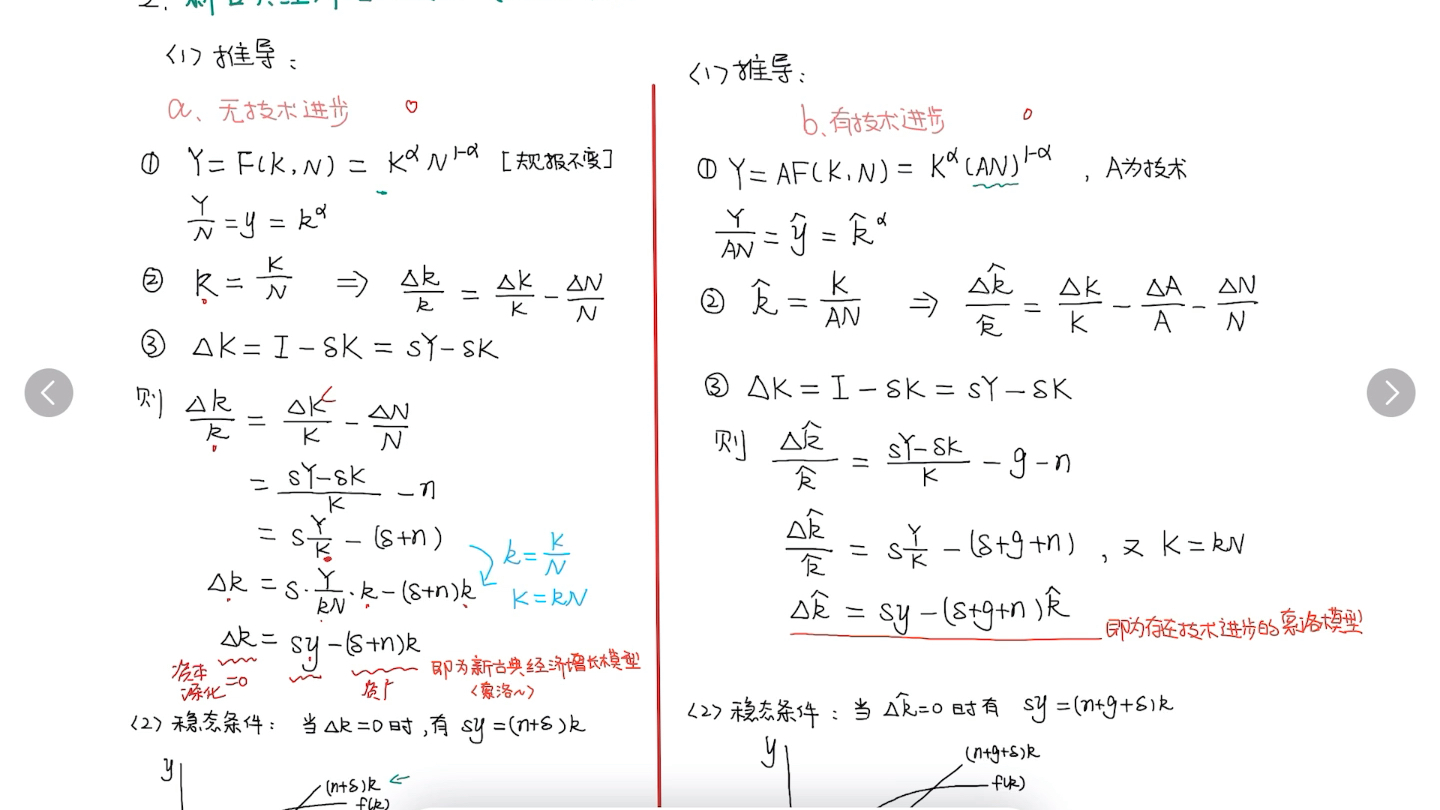 (1) 推导：
a、无技术进步
① Y = F(K, N) = K^α N^{1-α} [规报不变]
Y/N = y = k^α
② k = K/N ⇒ Δk/k = ΔK/K - ΔN/N
③ ΔK = I - δK = sY - δK
则 Δk/k = ΔK/K - ΔN/N
= (sY - δK)/K - n
= s Y/K - (δ+n)
k = K/N
K = kN
Δk = s · Y/kN · k - (δ+n)k
Δk = sy - (δ+n)k
资本深化 =0
资广
即为新古典经济增长模型
(索洛~)
(2) 稳态条件： 当 Δk = 0 时, 有 sy = (n+δ)k
y
(n+δ)k
f(k)
(1) 推导：
b、有技术进步
① Y = AF(K, N) = K^α (AN)^{1-α} , A为技术
Y/AN = ŷ = k̂^α
② k̂ = K/AN ⇒ Δk̂/k̂ = ΔK/K - ΔA/A - ΔN/N
③ ΔK = I - δK = sY - δK
则 Δk̂/k̂ = (sY - δK)/K - g - n
Δk̂/k̂ = s Y/K - (δ+g+n) , 又 K = kN
Δk̂ = sy - (δ+g+n)k̂
即为存在技术进步的索洛模型
(2) 稳态条件： 当 Δk̂ = 0 时有 sy = (n+g+δ)k
y
(n+g+δ)k
f(k)